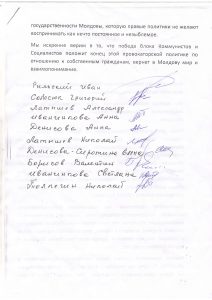 государственности Молдовы, которую правые политики не желают
воспринимать как нечто постоянное и незыблемое.
Мы искренне верим в то, что победа блока Коммунистов и
Социалистов положит конец этой провокаторской политике по
отношению к собственным гражданам, вернет в Молдову мир и
взаимопонимание.
Римский Иван
Григорий
Латышев Александр
Иванчикова Анна
Денисова Анна
Латышев Николай
Денисова-Сиротина
Борисов Валентин
Иванчикова Светлана
Николай